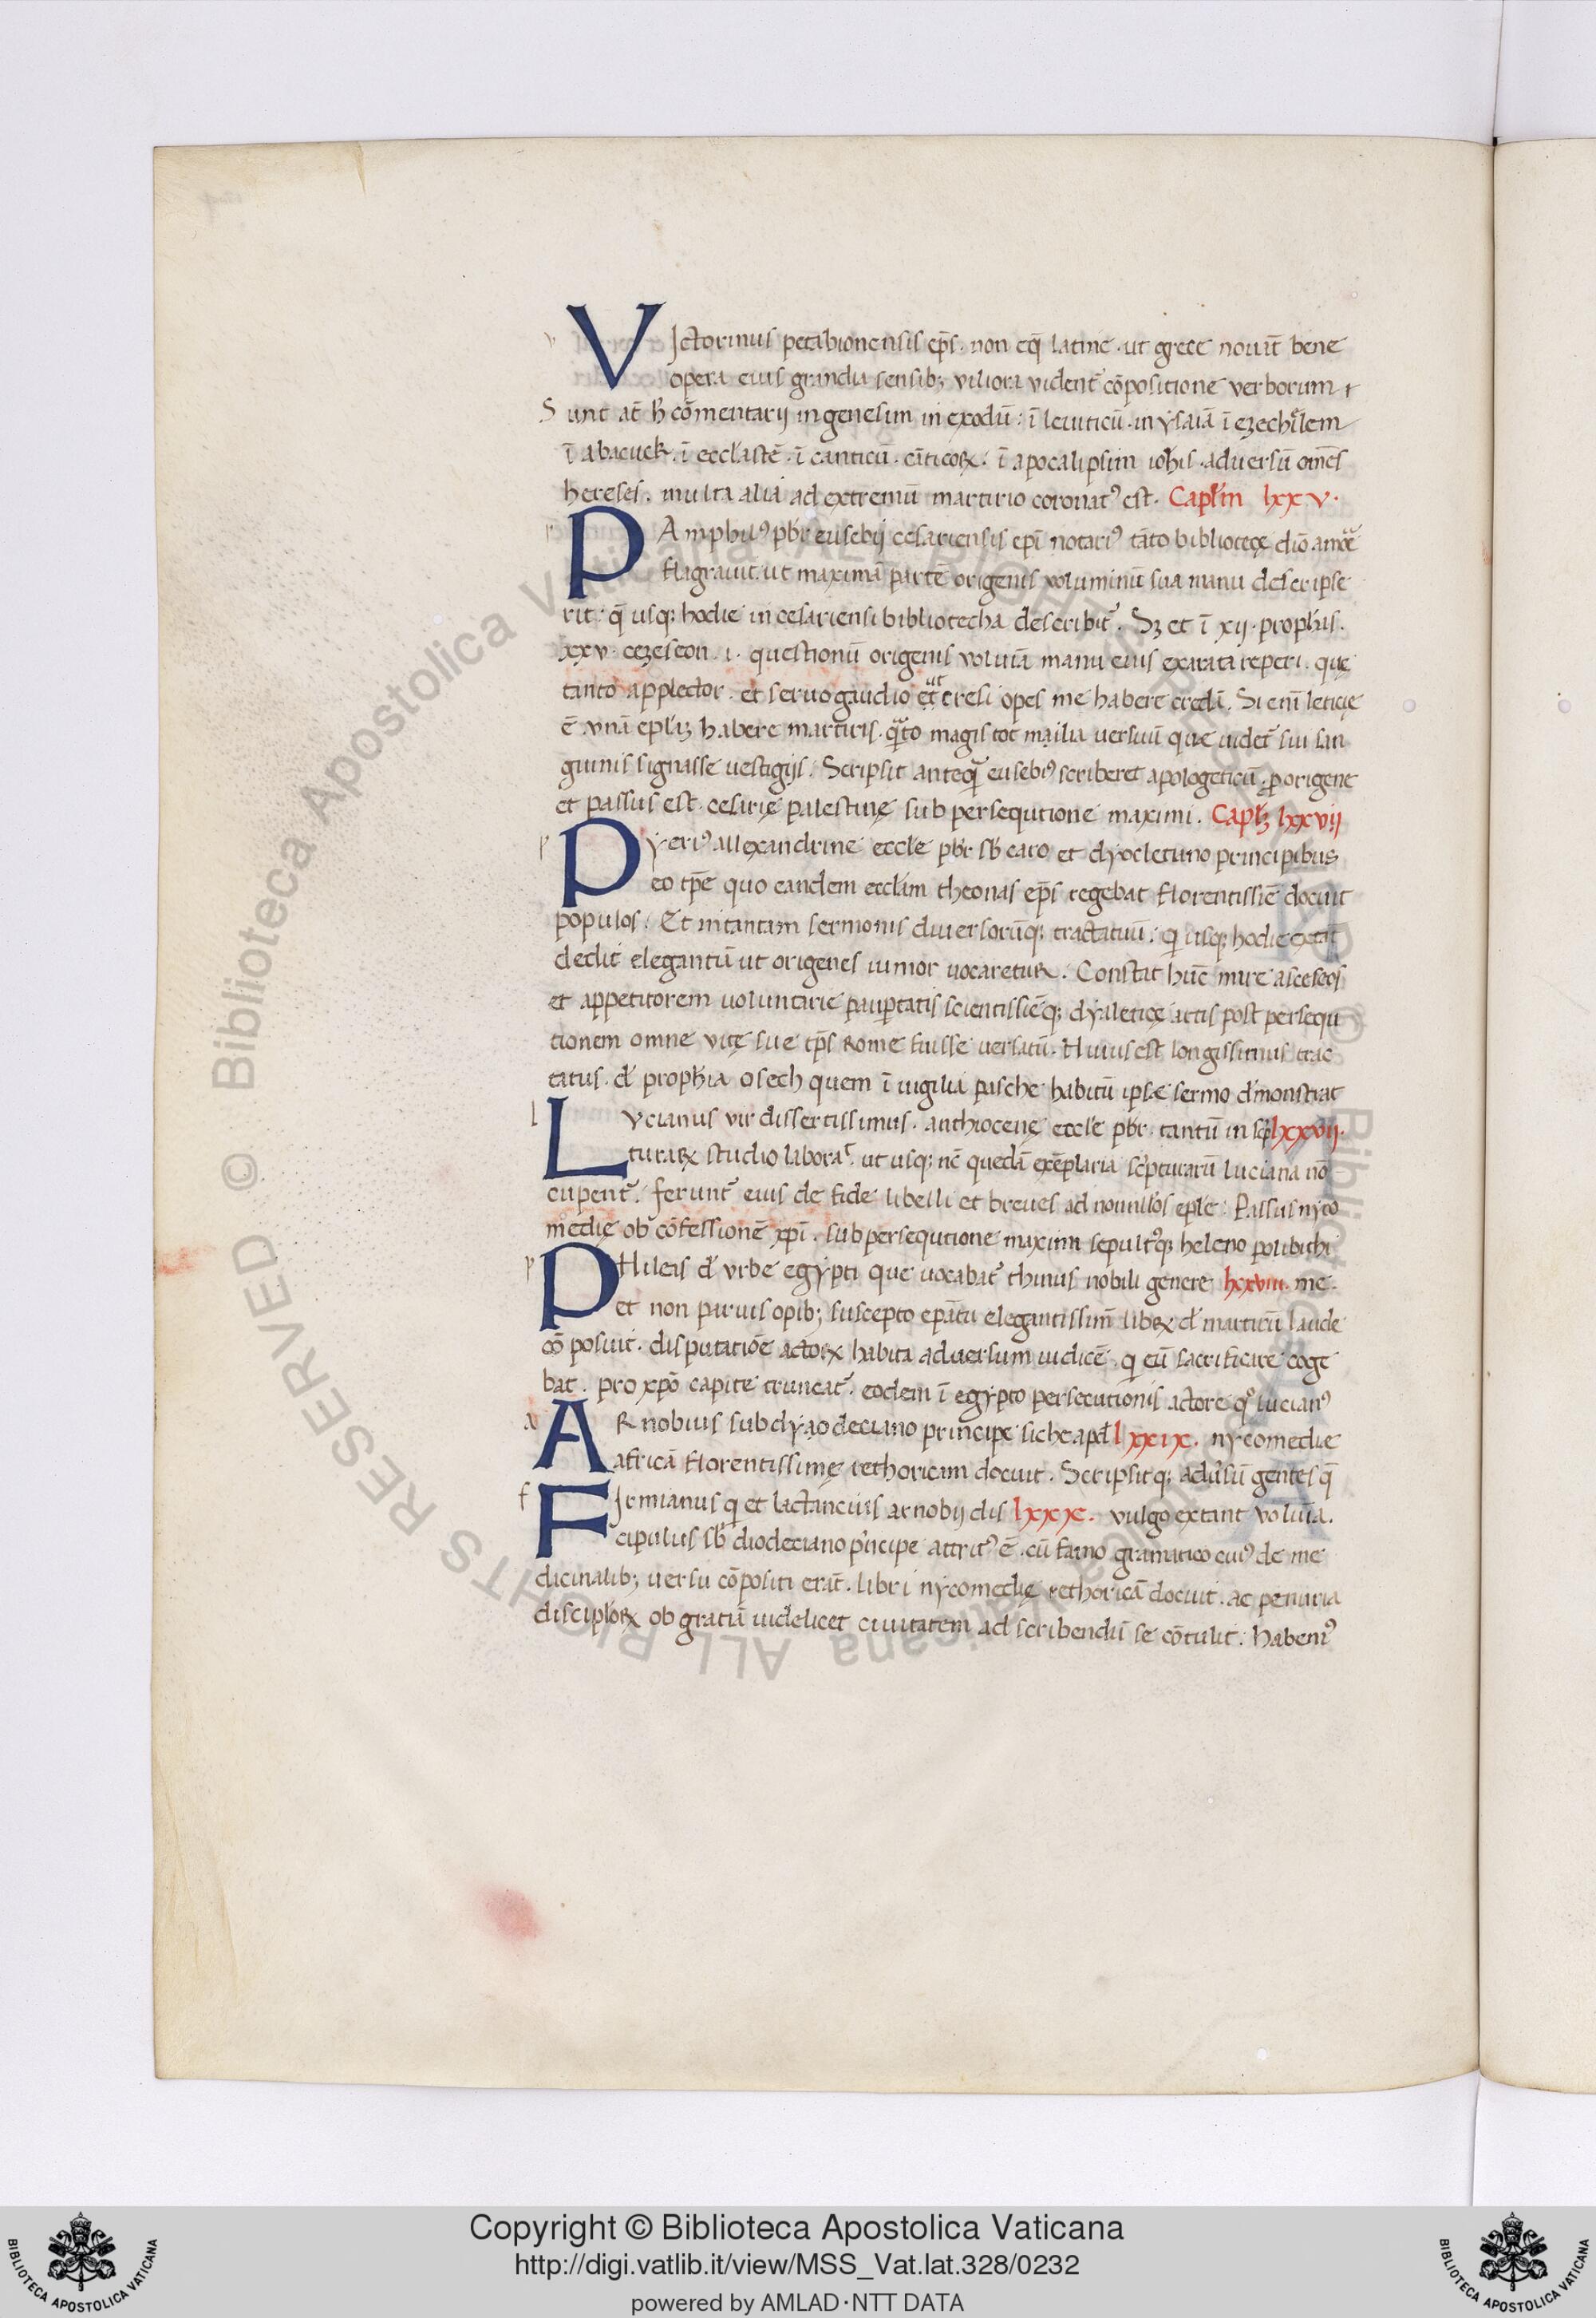 VIctorinus petabionensis ep̄s. non eq̄ latine. ut grece nouit̄ bene
opera eius grandia sensib; uiliora uident᷑ cōpositione verborum
Sunt at̄ h̄ cōmentarij in genesim in exodū. ī leuiticū. in ysaiā ī ezechīlem
ī abacuck. ī eccl̄astē. ī canticū. cāticoꝝ. ī apocalipsim ioh̄is. aduersū om̄es
hereses. multa alia ad extremū martirio coronatꝰ est. Capl̄m lxxv.
PAmphilꝰ pb̄r eusebij cesariensis epī notariꝰ tāto bibliotecę
flagrauit. ut maximā partē origenis voluminū sua manu descripse
rit. q̄ usq; hodie in cesariensi bibliotecha describit᷑. Sꝫ et ī xij. proph̄is.
xxv. cezeseon. i. questionū origenis voluīa manu eius exarata reperi. quę
tanto applector. et seruo gaudio ut cresi opes me habere credā. Si enī leticię
ē. vnā ep̄lꝫ habere martiris. q̄to magis tot mailia uersuū que uidet᷑ sui san
guinis signasse uestigijs. Scripsit anteq̄ eusebiꝰ scriberet apologeticū. ꝓ origene
et passus est. cesarię palestinę sub persequtione maximi. Capl̄ꝫ lxxvij
Pyeriꝰ allexandrine eccl̄e pb̄r sb̄ caro et dyocletiano principibus
eo tp̄e quo eandem eccl̄am theonas ep̄s regebat florentissiē docuit
populos. Et in tantam sermonis diuersorūq; tractatuū. q̄ usq; hodie extāt
dedit elegantiā ut origenes iunior uocaretur. Constat hūc mire asceseos
et appetitorem uoluntarie paup̄tatis scientissiēq; dyaleticę artis post persequ
tionem omne vitę sue tp̄s Rome fuisse uersatū. Huius est longissimus trac
tatus. d̄ proph̄ia osech quem ī uigilia pasche habitū ipse sermo d̄monstrat
Lvcianus vir dissertissimus. anthiocenę eccl̄e pb̄r. tantū in scp̄ lxxvij.
turaꝝ studio labora᷑. ut usq; nc̄ quedā exēplaria sc̄pturarū luciana nō
cupent᷑. ferunt᷑ eius de fide libelli et breues ad nonnll̄os ep̄le. Passus nyco
medię ob cōfessionē xp̄i. sub persequtione maximi sepultꝰq; heleno polibithi
PHileas d̄ vrbe egypti que uocabat᷑ thinus nobili genere lxxviii. me.
et non paruis opib; suscepto ep̄atu elegantissim̄ libꝝ d̄ martirū laude
cō posuit. disputatiōe actoꝝ habita aduersum iudicē. q̄ eū sacrificare coge
bat. pro xp̄o capite truncat᷑. eodem ī egypto persecutionis actore qͦ lucianꝰ
ARnobius sub dyaodeciano principe siche apd̄ lxxix. nycomedie
africā florentissimę rethoricam docuit. Scripsitq; adu̅sū gentes q̄
FIrmianus q̄ et lactancius arnobij dis lxxx. vulgo extant voluīa.
cipulus sb̄ diodeciano pͥncipe attritꝰ ē. cū famo gramatico cuiꝰ de me
dicinalib; uersu cōpositi erāt. libri nycomedię rethoricā docuit. ac penuria
discipl̄oꝝ ob gratiā uidelicet ciuitatem ad scribendū se cōtulit. habemꝰ
v
p
p
l
p
a
f
© Biblioteca Apostolica Vaticana ALL RIGHTS RESERVED
Copyright © Biblioteca Apostolica Vaticana
http://digi.vatlib.it/view/MSS_Vat.lat.328/0232
powered by AMLAD·NTT DATA
BIBLIOTECA APOSTOLICA VATICANA
BIBLIOTECA APOSTOLICA VATICANA